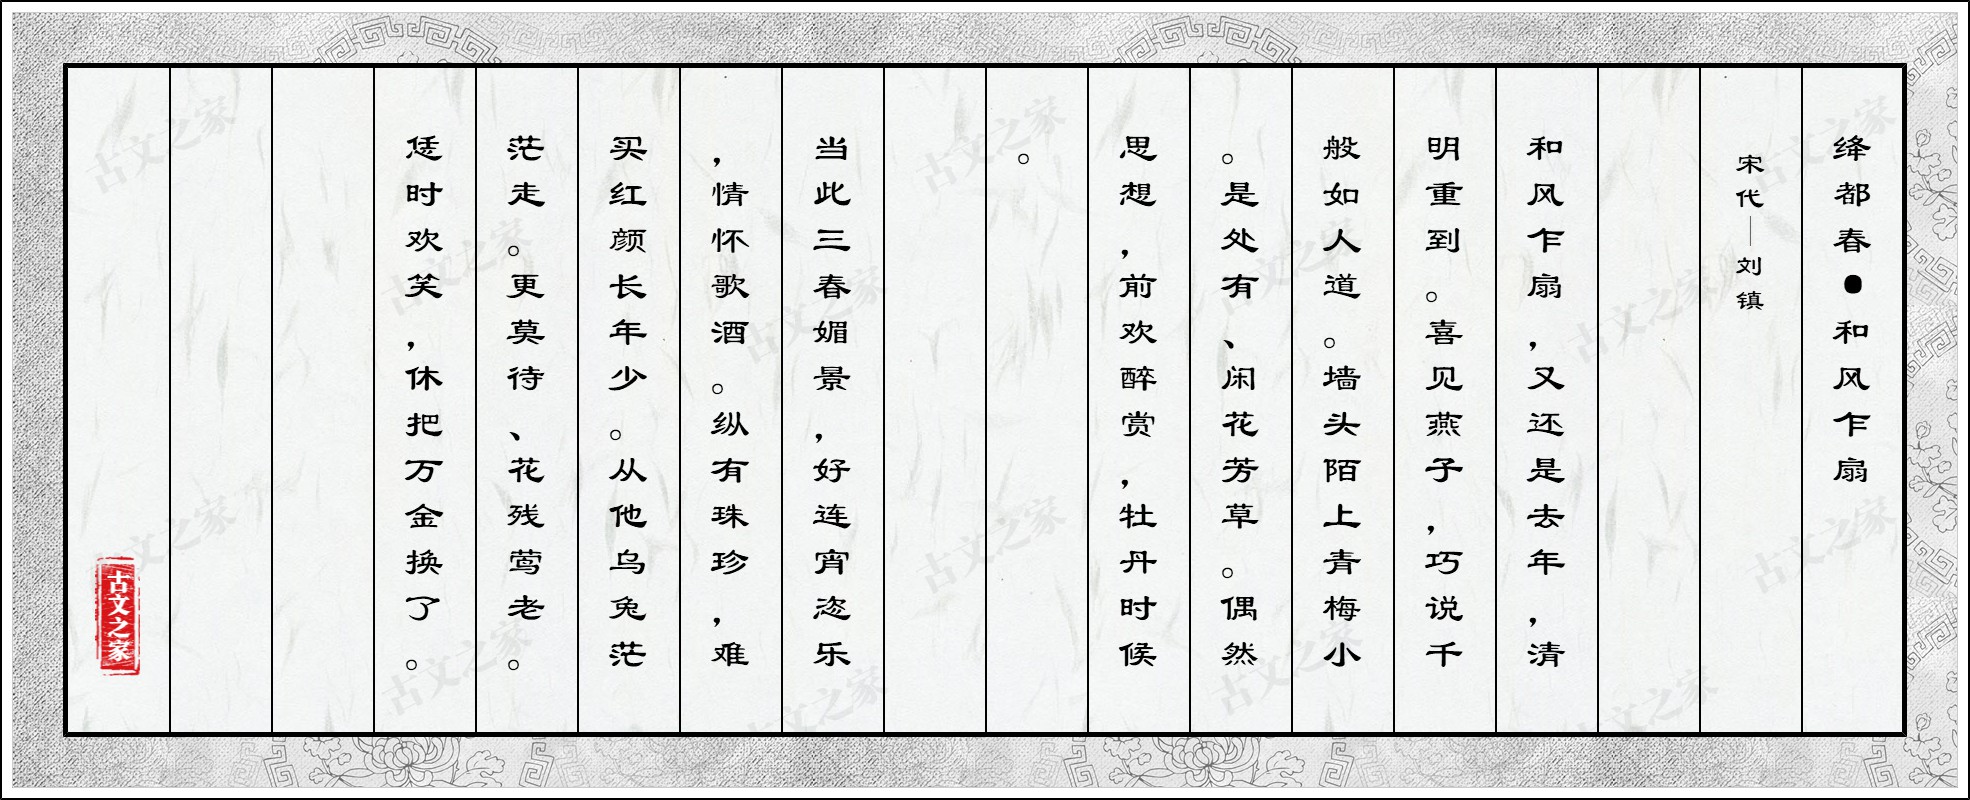 绛都春●和风乍扇
宋代—刘镇
和风乍扇，又还是去年，清
明重到。喜见燕子，巧说千
般如人道。墙头陌上青梅小
。是处有、闲花芳草。偶然
思想，前欢醉赏，牡丹时候
。
当此三春媚景，好连宵恣乐
，情怀歌酒。纵有珠珍，难
买红颜长年少。从他乌兔茫
茫走。更莫待、花残莺老。
恁时欢笑，休把万金换了。
古文之家